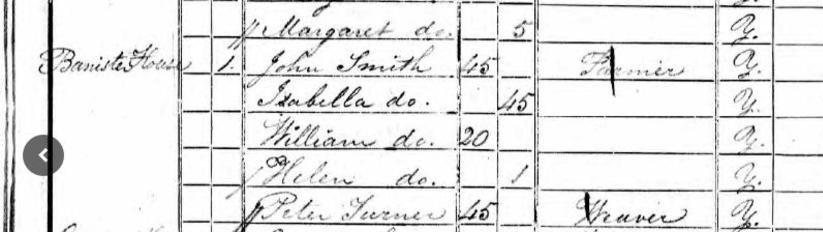 Margaret do. 5 Y.
Baniste House 1. John Smith 45 Farmer Y.
Izabella do. 45 Y.
William do. 20 Y.
Helen do. 1 Y.
Peter Turner 45 Weaver Y.